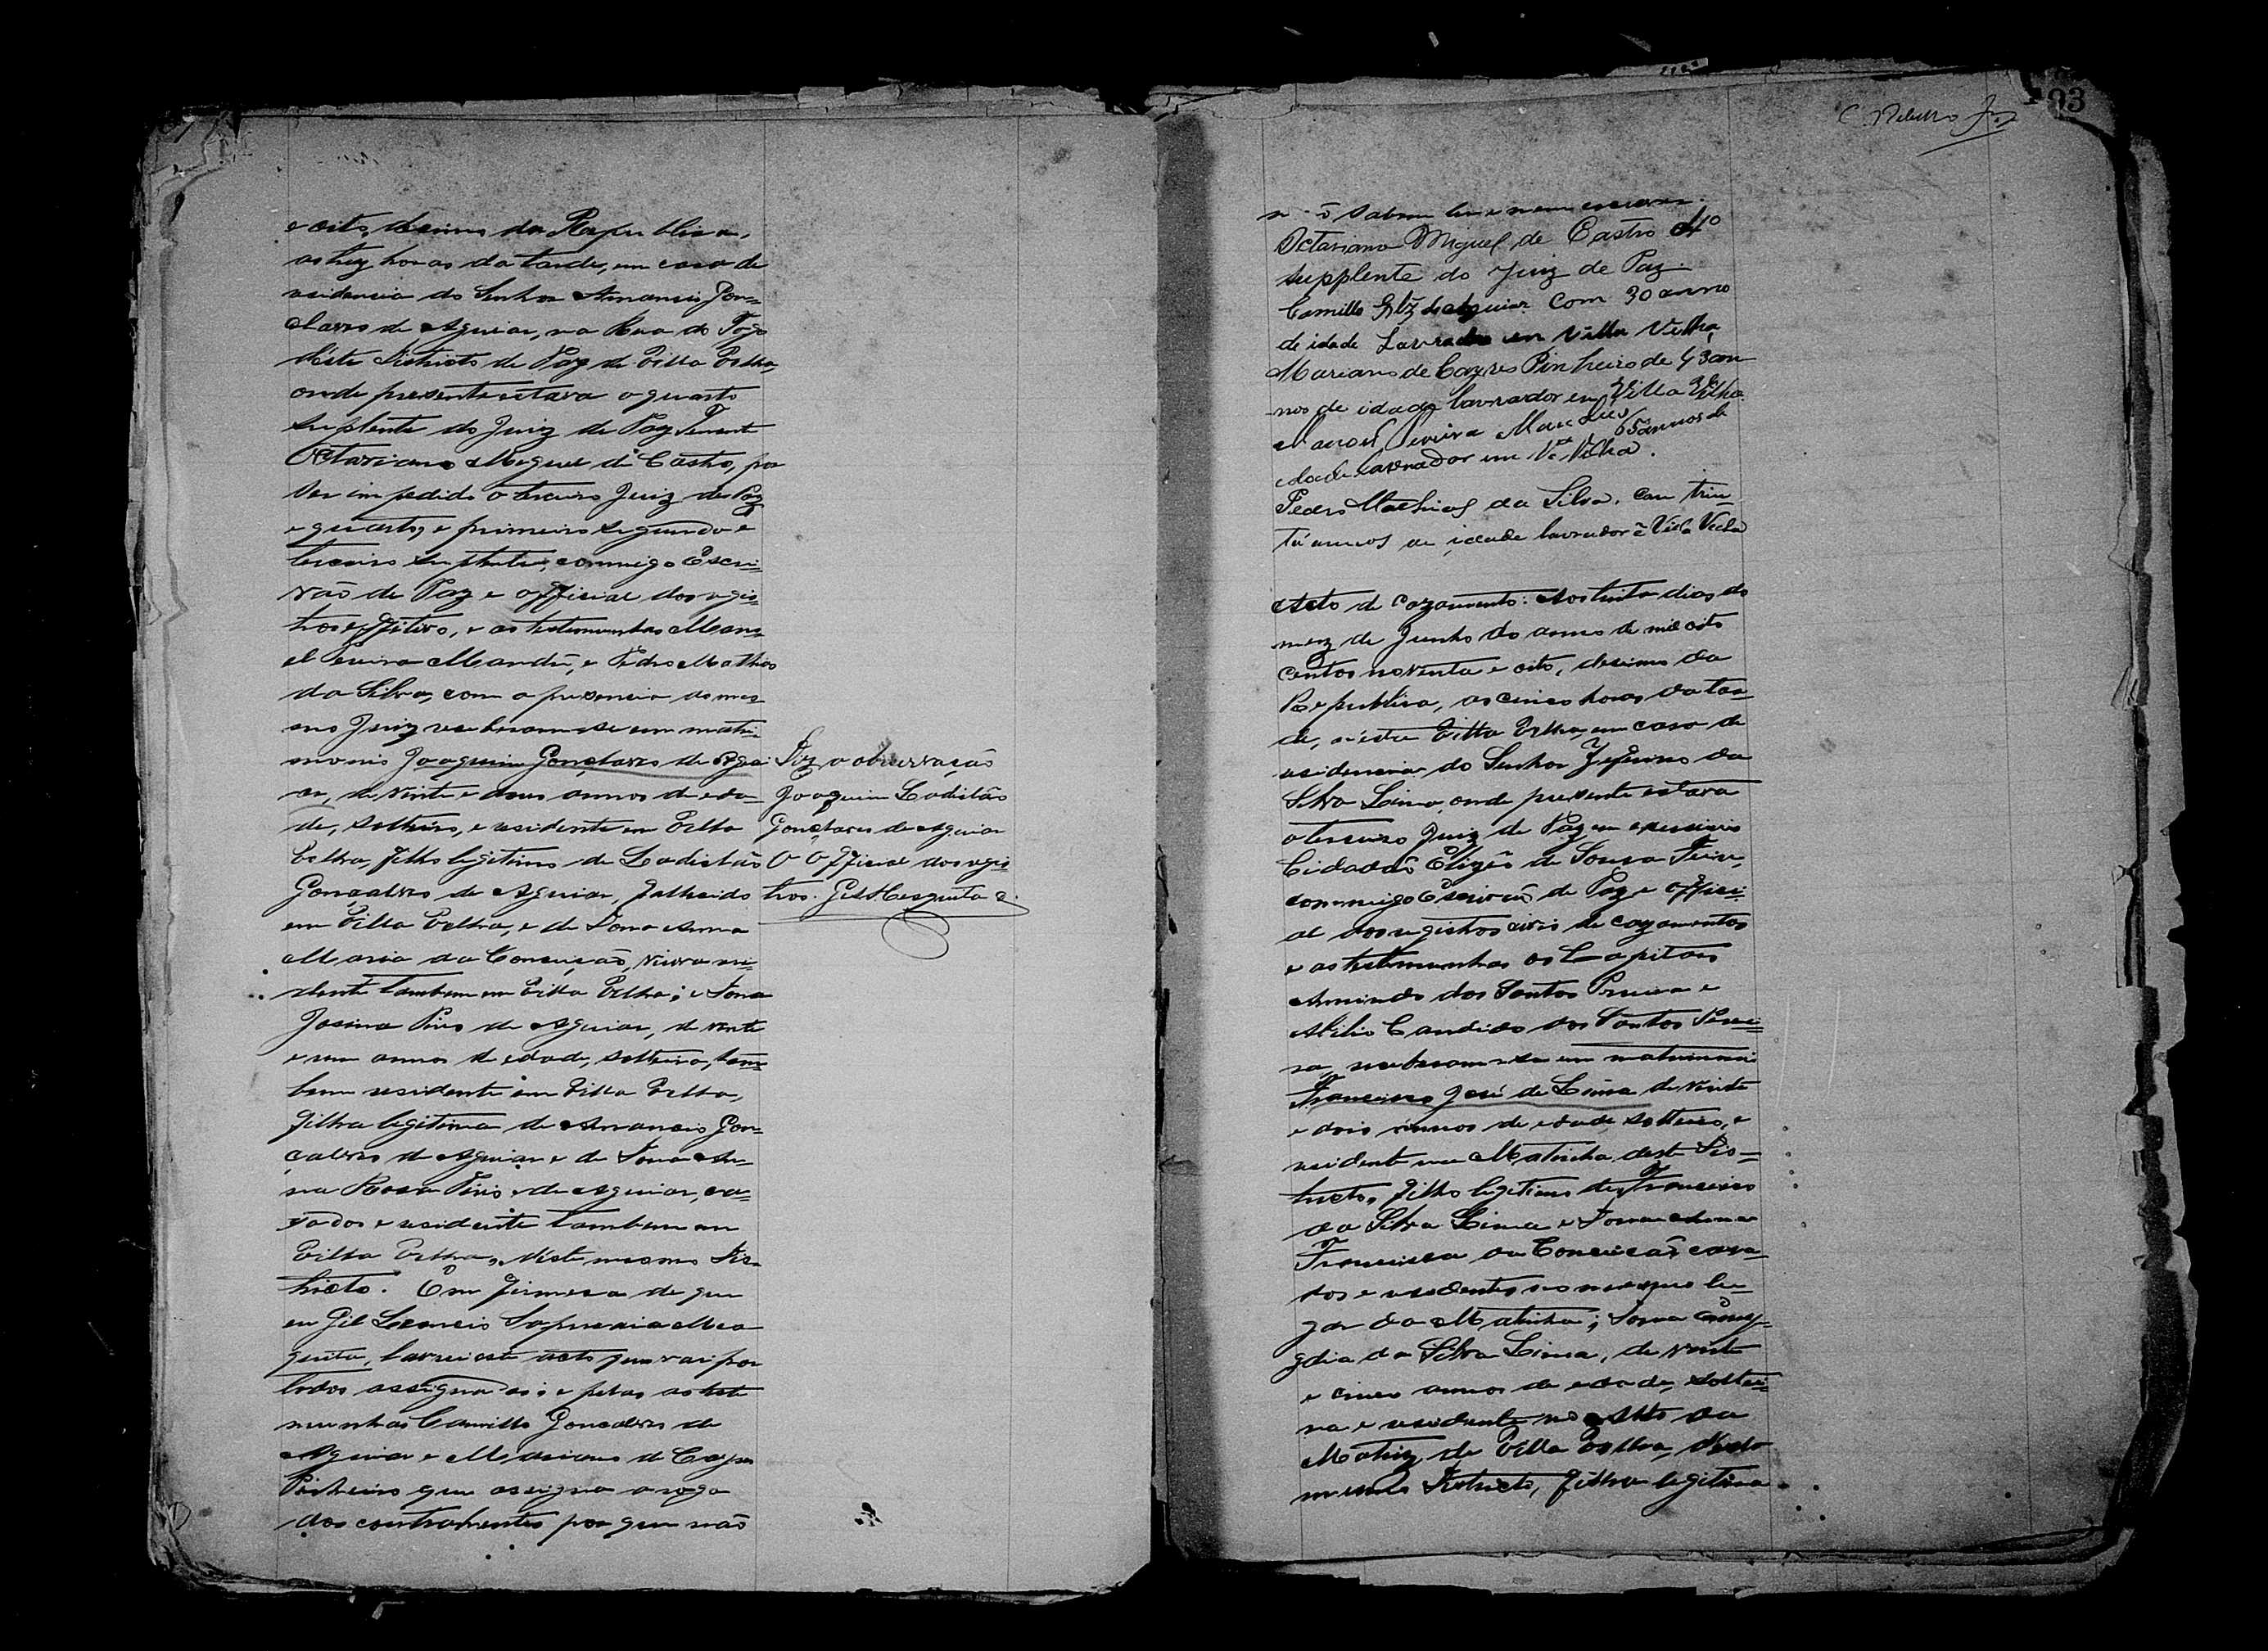 e oito, decimo da Republica,
as tres horas da tarde, em casa de
residencia do Senhor Amancio Gon-
çalves de Aguiar, na Rua do Fogo
déste Districto de Paz de Villa Velha,
onde presente estava o quarto
suplente do Juiz de Paz Tenente
Octaviano Miguel de Castro, por
ser impedido o terceiro Juiz de Paz
e quarto, e primeiro segundo e
terceiro suplentes, commigo Escri-
vão de Paz e official dos regis-
tros effetivo, e as testemunhas Mano-
el Pereira e Pedro Mathias
da Silva, com a presencia do mes-
mo Juiz receberam-se em matri-
monio Joaquim Gonçalves de Agui-
ar, de vinte e annos de eda-
de, solteiro, e residente em Villa
Velha, filho legitimo de Ladisláo
Gonçalves de Aguiar, falhecido
em Villa Velha, e de Dona Anna
Maria da Conceição, viuva resi-
dente tambem em Villa Velha; e Dona
Josina Pires de Aguiar, de vinte
e um annos de edade, solteira, tam-
bem residente em Villa Velha,
filha legitima de Amancio Gon-
çalves de Aguiar e de Dona An-
na Rosa Pires de Aguiar, ca-
zados e residente tambem em
Villa Velha, deste mesmo Dis-
tricto. Em firmesa do que
eu Gil Mes-
quita, lavrei este acto que vai por
todos assignado e pelas as teste-
munhas Camillo Gonçalves de
Aguiar e Mariano de Cayres
Pinheiro que assigna a rogo
dos contrahentes por que não
Diz a observação
Joaquim Ladisláo
Gonçalves de Aguiar
O Official dos regis-
tros. Gil Mesquita
93
sabem ler e nem escrever.
Octaviano Miguel de Castro 4º
supplente do Juiz de Paz.
Camillo Glz de Aguiar com 30 anno
de idade Lavrador em Villa Velha
Mariano de Cayres Pinheiro de 43 an
nos de idade lavrador em Villa Velha
Manoel Pereira 65 annos de
edade lavrador em Vª Velha.
Pedro Mathias da Silva, com trin
ta annos de idade lavrador ẽ Vila Velha
Acto de cazamento: Aos trinta dias do
mez de Junho do anno de mil oito
centos noventa e oito, decimo da
Republica, as cinco horas da tar-
de, néstre Villa Velha, em casa de
residencia do Senhor Zeferino da
Silva Lima, onde presente estava
o terceiro Juiz de Paz em exercicio
Cidadão Elizeo de Sousa
commigo Escrivão de Paz e offici-
al dos registros civis de cazamentos
e as testemunhas os Capitães
Armindo dos Santos Pereira e
Abilio Candido dos Santos Perei-
ra, receberam-se em matrimonio
Francisco José de Lima de vinte
e dois annos de edade solteiro, e
residente na Matinha deste Dis-
tricto, filho legitimo de Francisco
da Silva Lima e Dona Anna
Francisca da Conceicão, casa-
dos e residentes no mesmo lu-
gar da Matinha; Dona
da Silva Lima, de vinte
e cinco annos de edade, soltei-
ra e residente no Alto da
Matriz de Villa Velha, deste
mesmo Districto, filha legitima